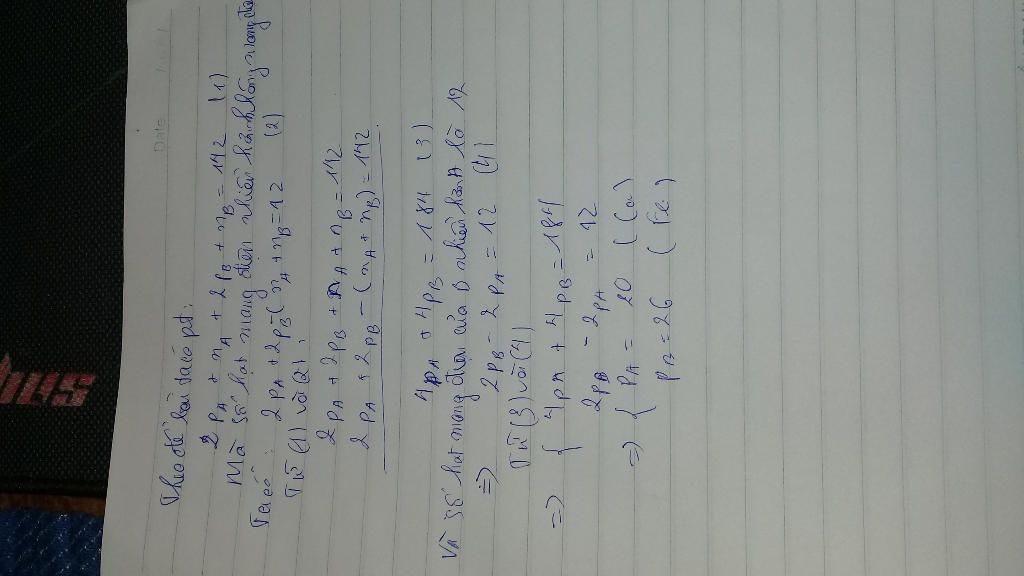 Date
Theo đề bài ta có pt:
2pA + nA + 2pB + nB = 142 (1)
Mà số hạt mang điện nhiều hơn không mang điện
Ta có: 2pA + 2pB - (nA + nB = 42 (2)
Từ (1) và (2):
2pA + 2pB + nA + nB = 142
2pA + 2pB - (nA + nB) = 142
4pA + 4pB = 184 (3)
Và số hạt mang điện của B nhiều hơn A là 12
=> 2pB - 2pA = 12 (4)
Từ (3) và (4)
=> { 4pA + 4pB = 184
2pB - 2pA = 12
=> { pA = 20 (Ca)
pB = 26 (Fe)